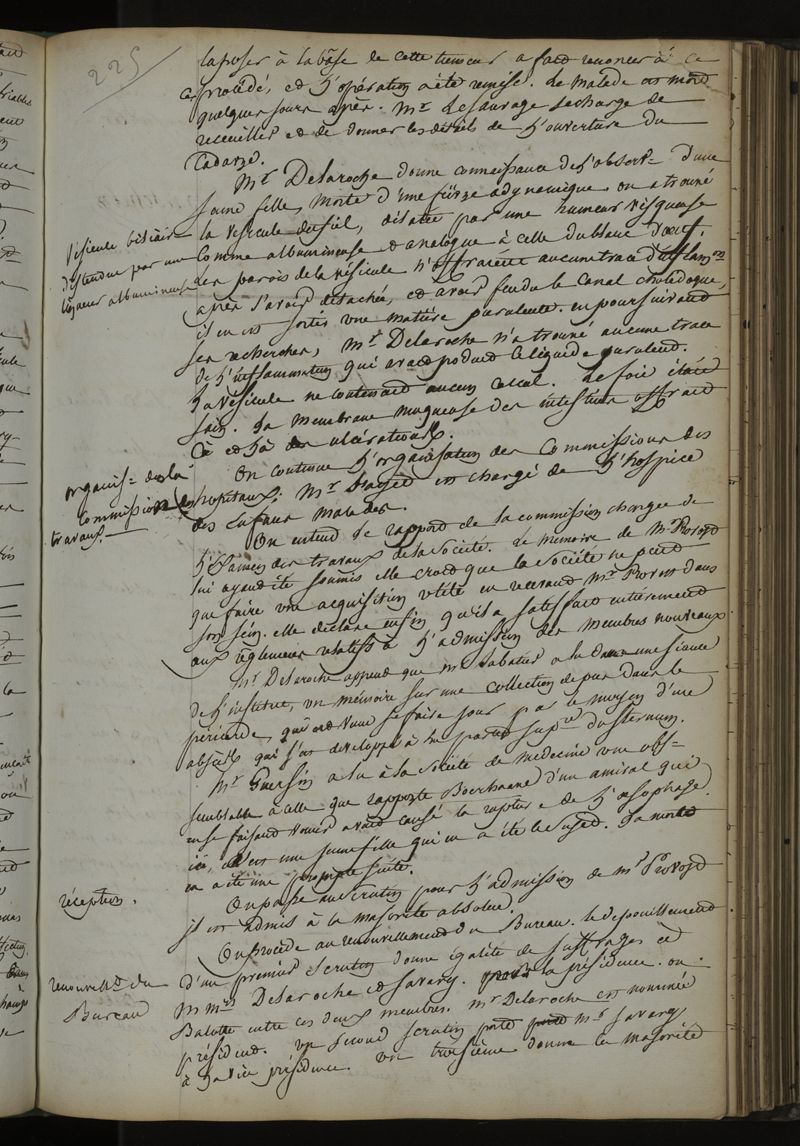 225
la poser à la base de cette tumeur a fait renoncer à ce
procédé, et l'opération a été remise. Le malade est mort
quelques jours après. Mr Lesauvage se charge de
recueillir et de donner les détails de l'ouverture du
Cadavre.
Mr Delaroche donne connaissance de l'observ= d'une
jeune fille, morte d'une fièvre adynamique on a trouvé
Vésicule biliaire
la vésicule du fiel, dilatée par une humeur visqueuse
distendue par une
Comme albumineuse et analogue à celle du blanc d'oeuf.
liqueur albumineuse
les parois de la vésicule n'offraient aucune trace d'inflamon
après l'avoir détachée, et avoir fendu le Canal cholédoque,
il en est sortie une matière purulente. en poursuivant
ses recherches, Mr Delaroche n'a trouvé aucune trace
de l'inflammation qui avait produit ce liquide purulent.
La vésicule ne contenait aucun calcul. Le foie était
sain. La membrane muqueuse des intestins offrait
Cà et là des ulcérations.
organis= de la
On continue l'organisation des Commissions des
Commission des
hopitaux. Mr est chargé de l'hospice
travaux.
des Enfans Malades.
On entend le rapport de la commission chargée de
l'Examen des travaux de la Société. Le mémoire de Mr Provost
lui ayant été soumis elle croit que la Société ne peut
que faire une acquisition utile en recevant Mr Provost dans
son sein. elle déclare enfin qu'il a satisfait entièrement
aux réglemens relatifs à l'admission des membres nouveaux
Mr Delaroche apprend que Mr Sabatier a lu dans une séance
de l'institut, un mémoire sur une collection de pus dans le
péricarde, qui est venue se faire jour par le moyen d'un
abscès qui s'est développé à la partie supre du sternum.
Mr Guersin a lu à la Société de médecine une obs=
semblable à celle que rapporte Boerhaave d'un amiral qui
en se faisant vomir avait causé la rupture de l'oesophage.
ici, c'est une jeune fille qui en a été le sujet. La mort
en a été une prompte suite.
réception.
On passe au scrutin pour l'admission de mr Provost
il est admis à la majorité absolue.
On procède au renouvellement du Bureau. le dépouillement
renouvellt du
d'un premier scrutin donne égalité de suffrages à
Bureau
MMrs Delaroche et Savary. pour la présidence. on
Balotte entre ces deux membres. Mr Delaroche est nommé
président. un second scrutin porte Mr Savary
à la vice présidence. un troisième donne la majorité